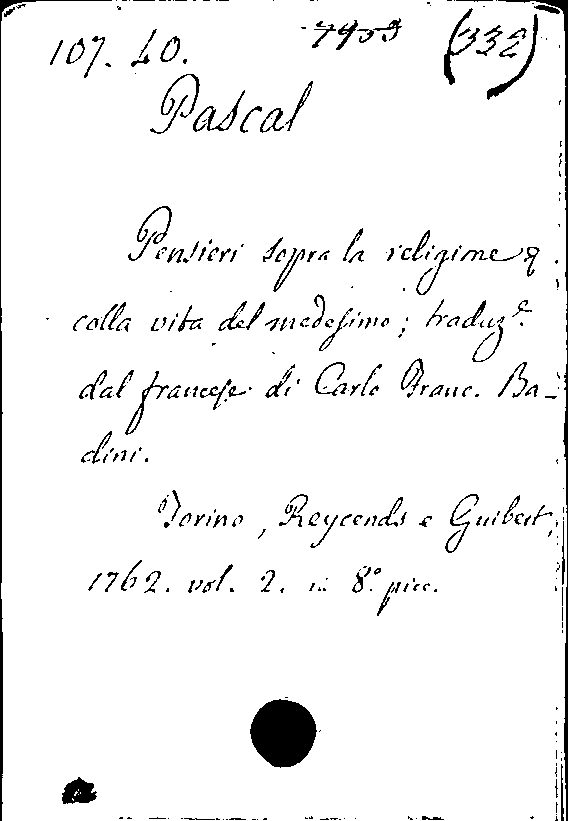 107. 40. 7953 (332)
Pascal
Pensieri sopra la religione &
colla vita del medesimo; traduz.e
dal francese di Carlo Franc. Ba-
dini.
Torino, Reycends e Guibert,
1762. vol. 2. in 8.° picc.